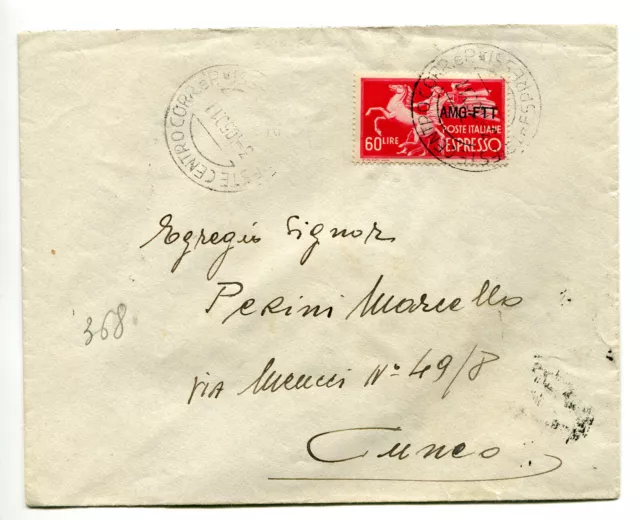 TRIESTE CENTRO CORR. E P.
AMG-FTT
60 LIRE
POSTE ITALIANE
ESPRESSO
Egregio Signor
Perini Marcello
Via Meucci N° 49/8
Cuneo
368